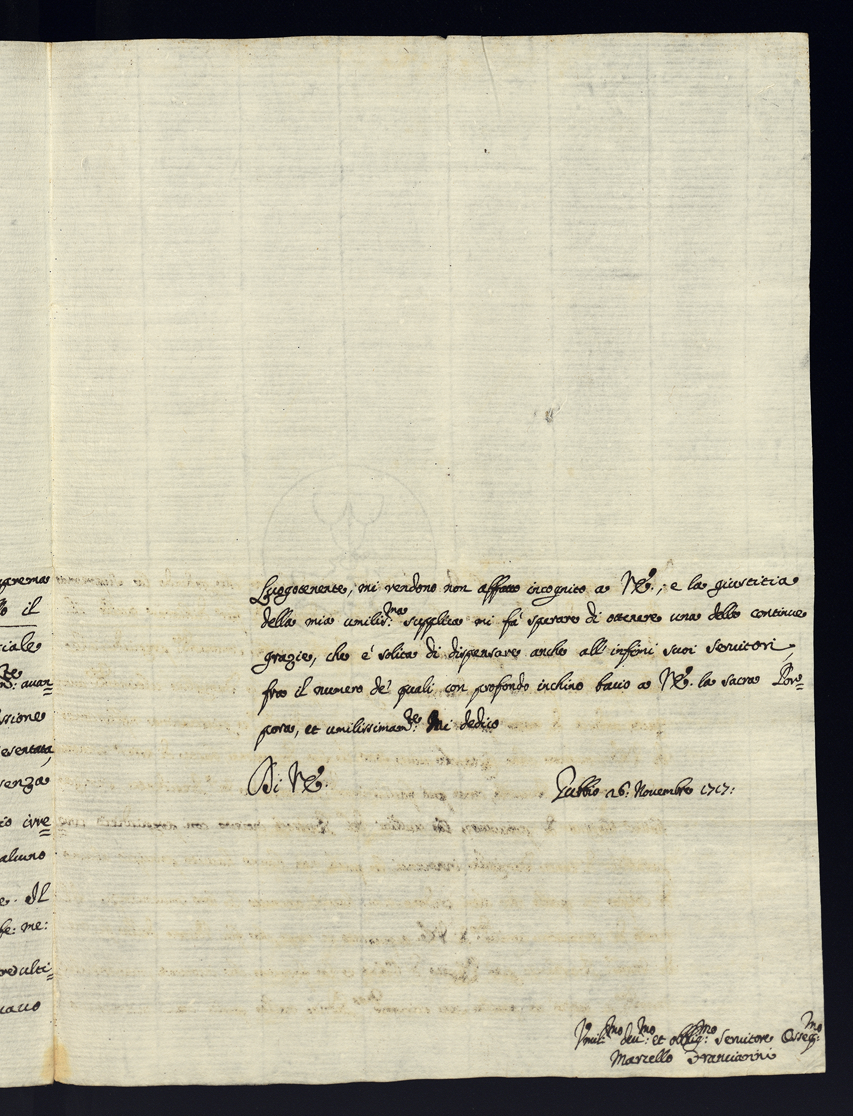 prema
o il
ciale
n:te avan=
ssione
esentata,
senza
io irre=
alcuno
e. Il
he: me:
redulti=
Luogotenente, mi rendono non affatto incognito a V.E., e la giustitia
della mia umiliss:ma supplica mi fà sperare di ottenere una delle continue
grazie, che è solita di dispensare anche all'infimi suoi servitori,
fra il numero de' quali con profondo inchino bacio a V.E. la sacra Por=
pora, et umilissimam:te mi dedico
Di V.E.
Gubbio 26: Novembre 1717:
Umil:mo dev:mo et obblig:mo servitore Osseq:mo
Marcello Franciarini